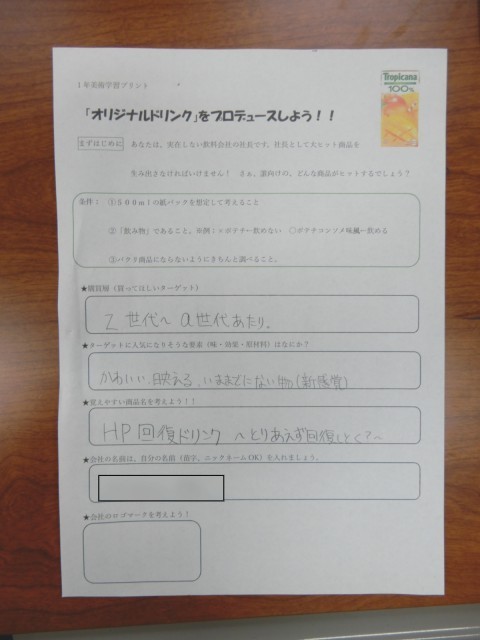 1年美術学習プリント
「オリジナルドリンク」をプロデュースしよう！！
Tropicana
100%
まずはじめに
あなたは、実在しない飲料会社の社長です。社長として大ヒット商品を
生み出さなければいけません！ さぁ、誰向けの、どんな商品がヒットするでしょう？
条件：①500mlの紙パックを想定して考えること
②「飲み物」であること。※例：×ポテチ＝飲めない ○ポテチコンソメ味風＝飲める
③パクリ商品にならないようにきちんと調べること。
★購買層（買ってほしいターゲット）
Z世代〜α世代あたり。
★ターゲットに人気になりそうな要素（味・効果・原材料）はなにか？
かわいい、映える、いままでにない物（新感覚）
★覚えやすい商品名を考えよう！！
HP回復ドリンク 〜とりあえず回復しとく？〜
★会社の名前は、自分の名前（苗字、ニックネームOK）を入れましょう。
★会社のロゴマークを考えよう！